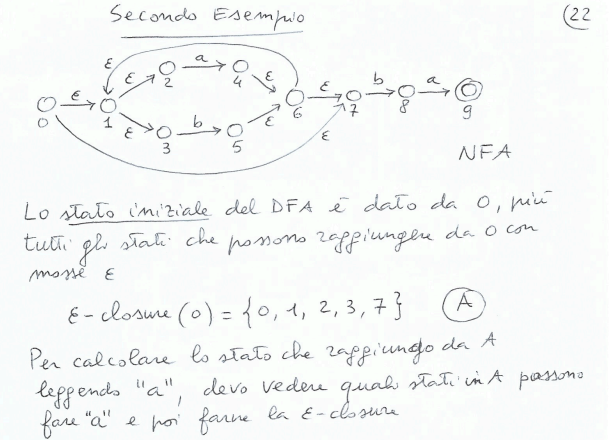 Secondo Esempio
(22
ε
ε
a
ε
ε
0
1
2
4
6
ε
b
a
7
8
9
ε
3
b
5
ε
ε
NFA
Lo stato iniziale del DFA è dato da 0, più
tutti gli stati che possono raggiungere da 0 con
mosse ε
ε-closure(0) = {0, 1, 2, 3, 7} A
Per calcolare lo stato che raggiungo da A
leggendo "a", devo vedere quali stati in A possono
fare "a" e poi farne la ε-closure